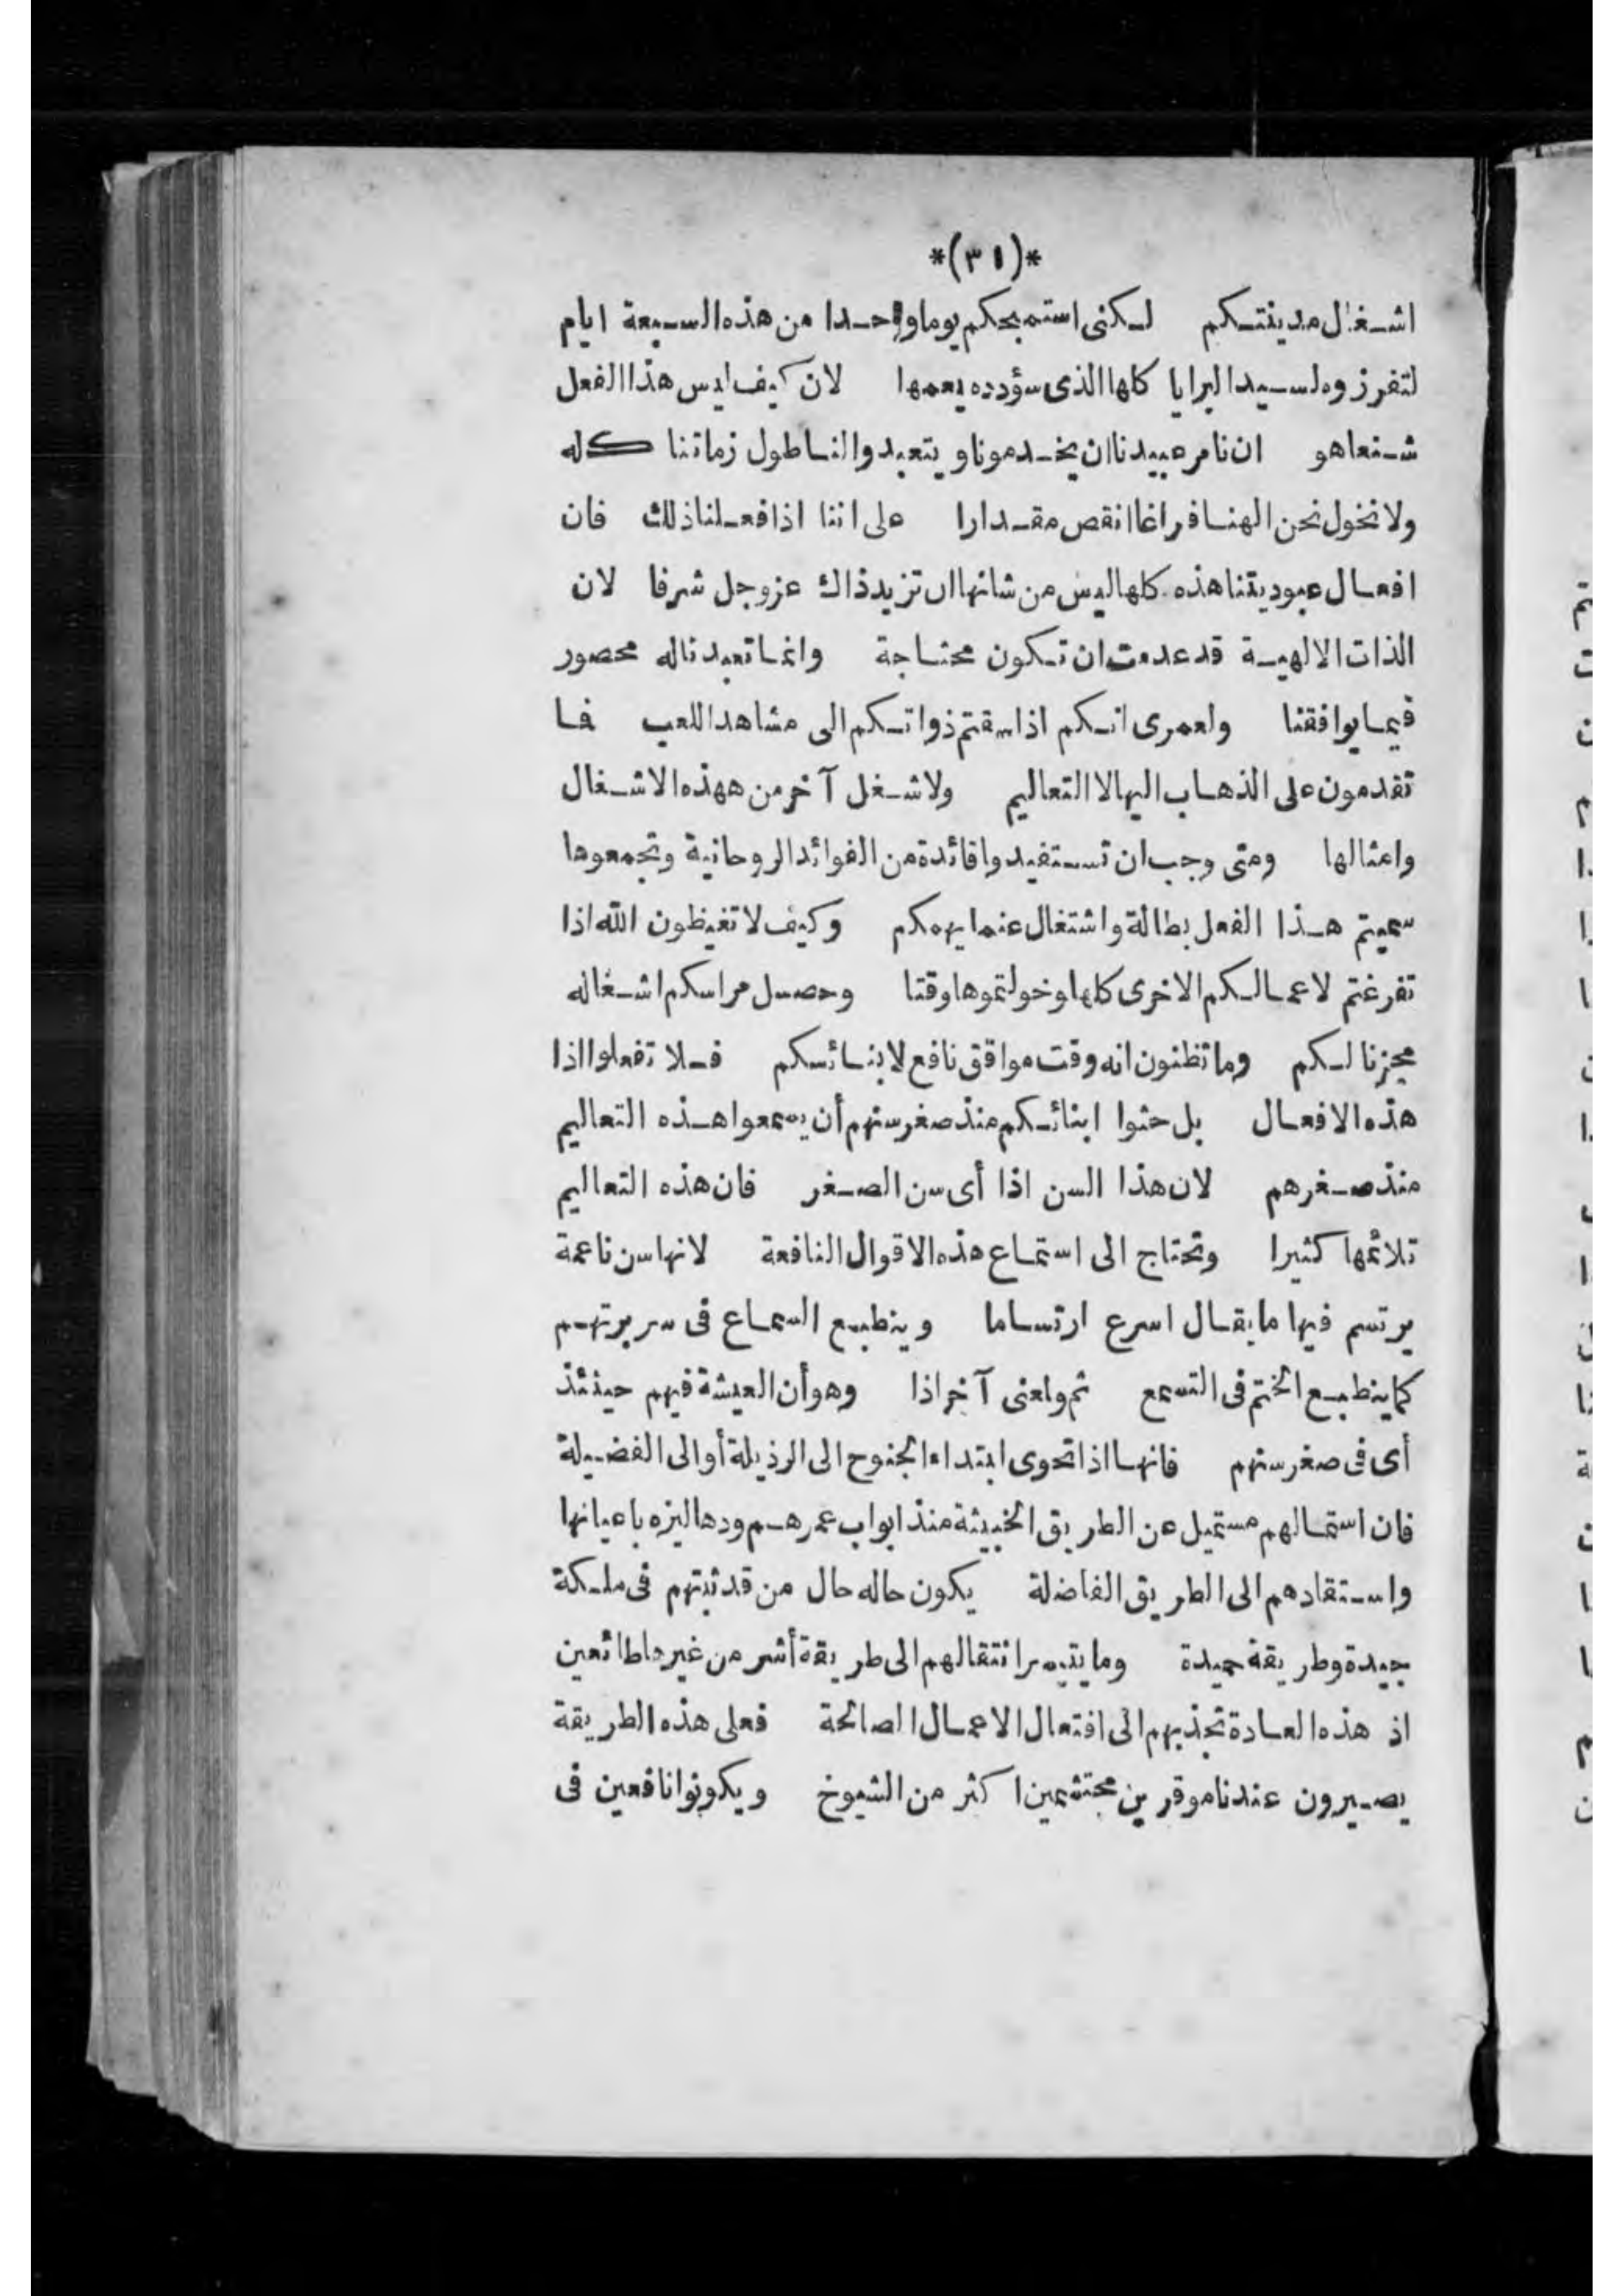 *(٣١)*
اشغال مدينتكم لكنى استمحكم يوما واحدا من هذه السبعة ايام
لتفرزوه لسيد البرايا كلها الذى سؤدده يعمها لان كيف ليس هذا الفعل
شنعا هو ان نامر عبيدنا ان يخدمونا ويتعبدوا لنا طول زماننا كله
ولا نخول نحن الهنا فراغا انقص مقدارا على اننا اذا فعلنا ذلك فان
افعال عبوديتنا هذه كلها ليس من شانها ان تزيد ذاك عز وجل شرفا لان
الذات الالهية قد عدمت ان تكون محتاجة وانما تعبدنا له محصور
فيما يوافقنا ولعمرى انكم اذا سقتم ذواتكم الى مشاهد اللعب فما
تقدمون على الذهاب اليها لا التعاليم ولا شغل آخر من ههذه الاشغال
وامثالها ومتى وجب ان تستفيدوا فائدة من الفوائد الروحانية وتجمعوها
سميتم هذا الفعل بطالة واشتغال عنما يهمكم وكيف لا تغيظون الله اذا
تفرغتم لاعمالكم الاخرى كلها وخولتموها وقتا وحصل مراسكم اشغاله
مجزنا لكم وما تظنون انه وقت موافق نافع لابنائكم فلا تفعلوا اذا
هذه الافعال بل حثوا ابنائكم منذ صغر سنهم أن يسمعوا هذه التعاليم
منذ صغرهم لان هذا السن اذا أى سن الصغر فان هذه التعاليم
تلائمها كثيرا وتحتاج الى استماع هذه الاقوال النافعة لانها سن ناعمة
يرتسم فيها ما يقال اسرع ارتساما وينطبع السماع فى سريرتهم
كما ينطبع الختم فى الشمع ثم ولعنى آخر اذا وهو أن العيشة فيهم حينئذ
أى فى صغر سنهم فانها اذا تحوى ابتداء الجنوح الى الرذيلة أو الى الفضيلة
فان استمالهم مستميل عن الطريق الخبيثة منذ ابواب عمرهم ودهاليزه باعيانها
واستقادهم الى الطريق الفاضلة يكون حاله حال من قد ثبتهم فى ملكة
جيدة وطريقة حميدة وما يتيسر انتقالهم الى طريقة أشر من غيرها طائعين
اذ هذه العادة تجذبهم الى افتعال الاعمال الصالحة فعلى هذه الطريقة
يصيرون عندنا موقرين محتشمين اكثر من الشيوخ ويكونوا نافعين فى